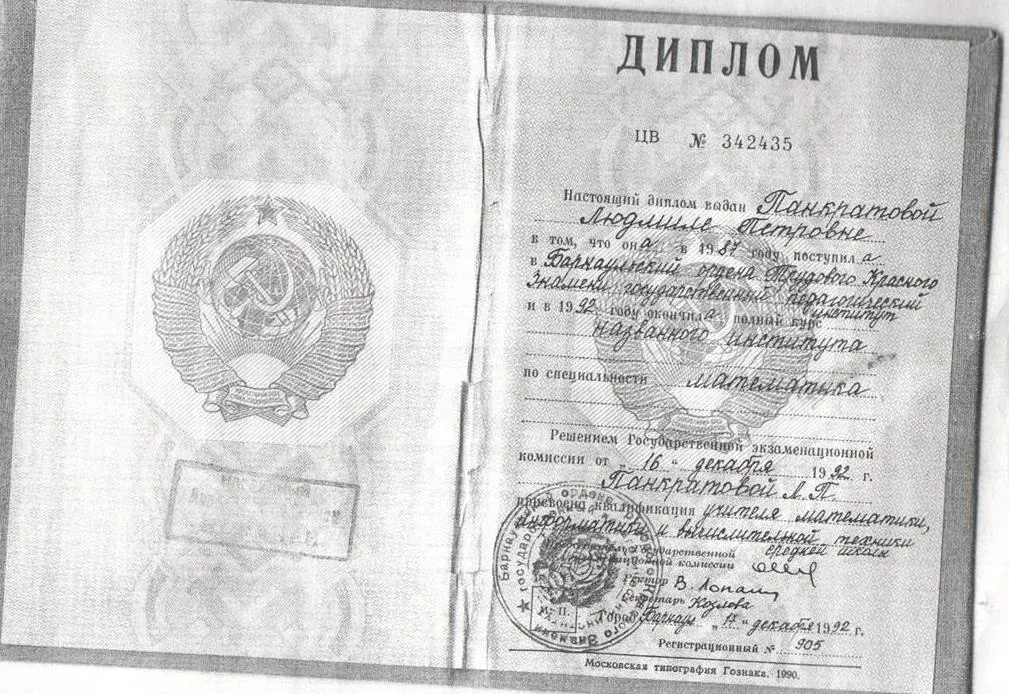 ДИПЛОМ
ЦВ № 342435
Настоящий диплом выдан Панкратовой
Людмиле Петровне
в том, что она в 1987 году поступила
в Барнаульский ордена Трудового Красного
Знамени государственный педагогический
институт
и в 1992 году окончила полный курс
названного института
по специальности математика
Решением Государственной экзаменационной
комиссии от „16“ декабря 1992 г.
Панкратовой Л. П.
присвоена квалификация учителя математики,
информатики и вычислительной техники
средней школы
Председатель Государственной
экзаменационной комиссии
Ректор В. Лопат
Секретарь Козлова
М. П. Город Барнаул „17“ декабря 1992 г.
Регистрационный № 905
Московская типография Гознака. 1990.